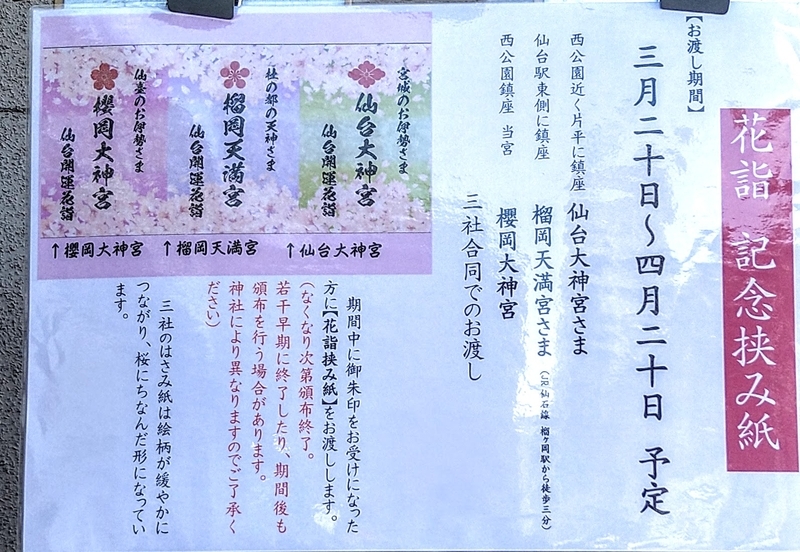 花詣 記念挟み紙
【お渡し期間】
三月二十日～四月二十日 予定
西公園近く片平に鎮座 仙台大神宮さま
仙台駅東側に鎮座 榴岡天満宮さま (JR仙石線 榴ヶ岡駅から徒歩三分)
西公園鎮座 当宮 櫻岡大神宮
三社合同でのお渡し
宮城のお伊勢さま
仙台大神宮
仙台開運花詣
杜の都の天神さま
榴岡天満宮
仙台開運花詣
仙臺のお伊勢さま
櫻岡大神宮
仙台開運花詣
↑櫻岡大神宮 ↑榴岡天満宮 ↑仙台大神宮
期間中に御朱印をお受けになった
方に【花詣挟み紙】をお渡しします。
(なくなり次第頒布終了。
若干早期に終了したり、期間後も
頒布を行う場合があります。
神社により異なりますのでご了承く
ださい)
三社のはさみ紙は絵柄が緩やかに
つながり、桜にちなんだ形になってい
ます。